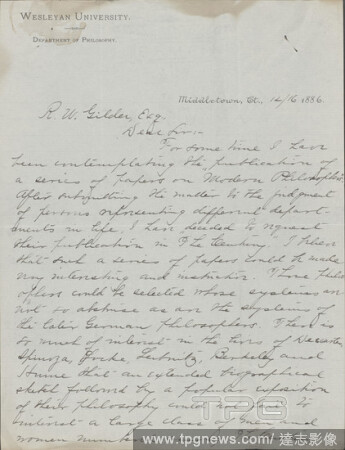 WESLEYAN UNIVERSITY.
DEPARTMENT OF PHILOSOPHY.
Middletown, Ct., 12/16 1886.
R. W. Gilder, Esq.
Dear Sir:-
For some time I have
been contemplating the publication of
a series of papers on "Modern Philosophers".
After submitting the matter to the judgment
of persons representing different depart-
ments in life, I have decided to request
their publication in The Century. I believe
that such a series of papers could be made
very interesting and instructive. Those philos-
ophers could be selected whose systems are
not so abstruse as are the systems of
the later German philosophers. There is
so much of interest in the lives of Descartes,
Spinoza, Locke, Leibnitz, Berkeley and
Hume that an extended biographical
sketch followed by a popular exposition
of their philosophy could not fail to
interest a large class of men and
women
TPG
www.tpgnews.com/達志影像